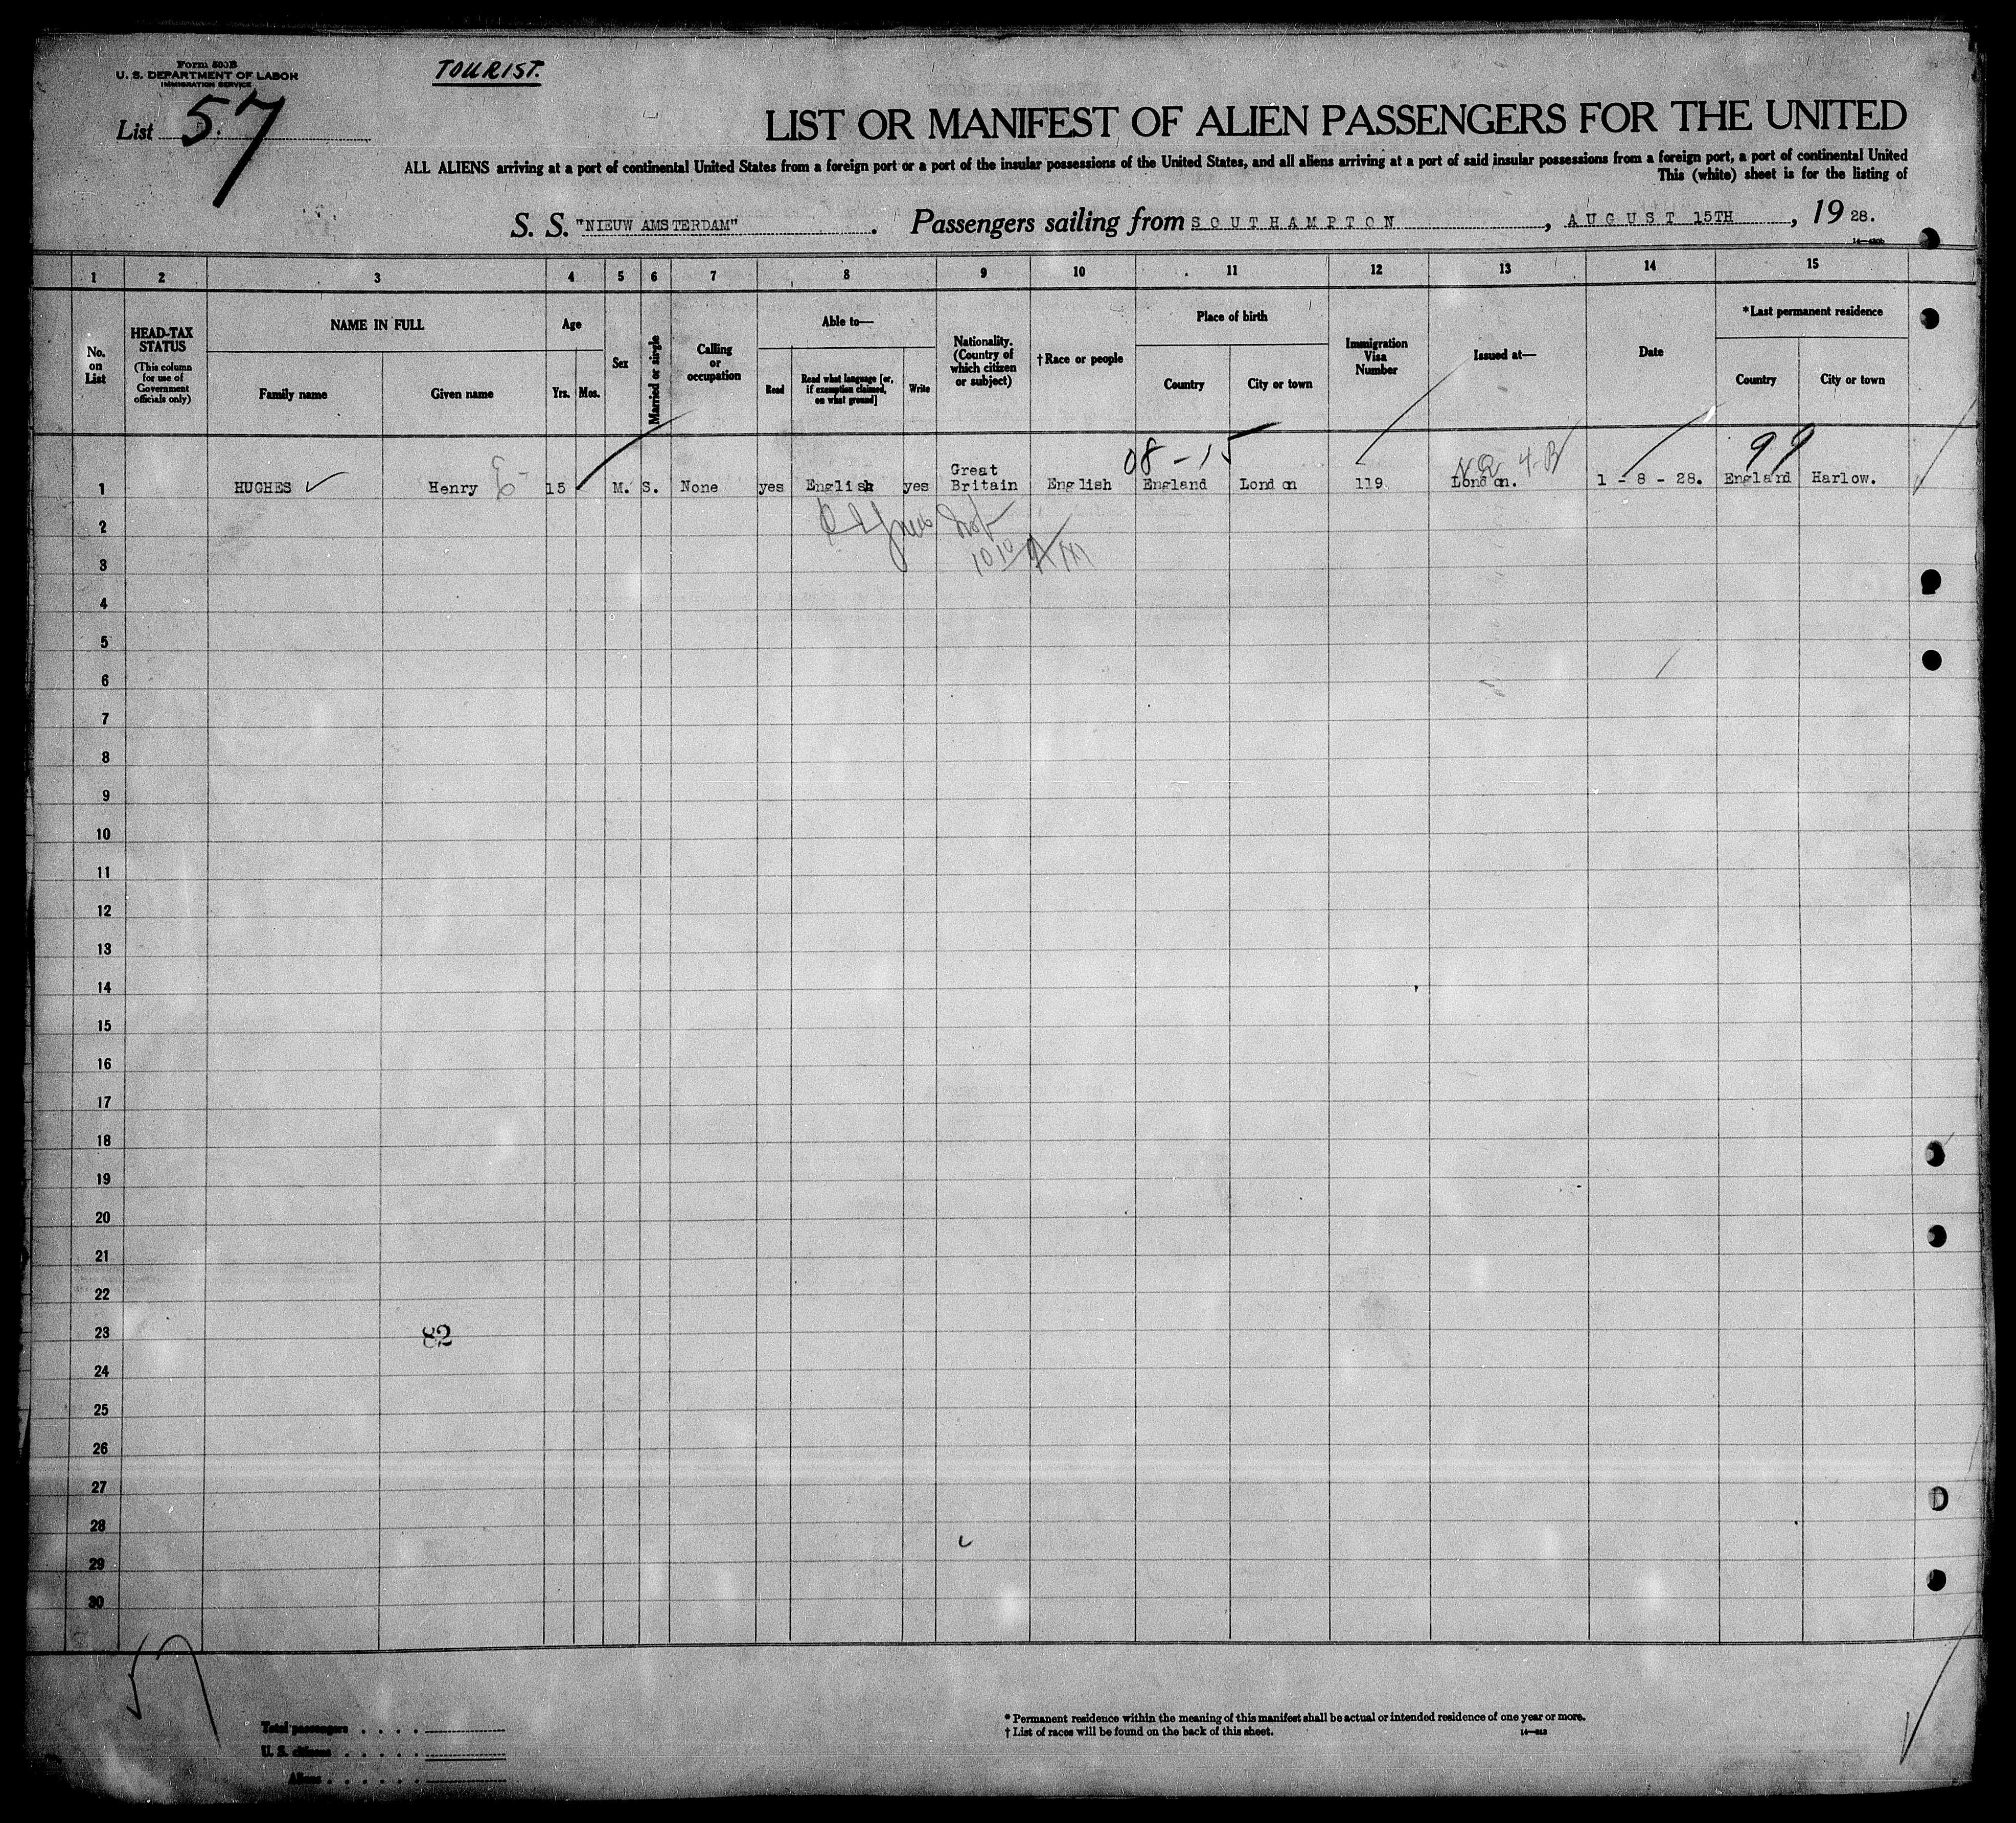 Form 500B
U. S. DEPARTMENT OF LABOR
IMMIGRATION SERVICE
TOURIST.
List 57
LIST OR MANIFEST OF ALIEN PASSENGERS FOR THE UNITED
ALL ALIENS arriving at a port of continental United States from a foreign port or a port of the insular possessions of the United States, and all aliens arriving at a port of said insular possessions from a foreign port, a port of continental United
This (white) sheet is for the listing of
S. S. "NIEUW AMSTERDAM". Passengers sailing from SOUTHAMPTON, AUGUST 15TH, 1928.
1 2 3 4 5 6 7 8 9 10 11 12 13 14 15
No. on List
HEAD-TAX STATUS
(This column for use of Government officials only)
NAME IN FULL
Family name
Given name
Age
Yrs.
Mos.
Sex
Married or single
Calling or occupation
Able to—
Read
Read what language [or, if exemption claimed, on what ground]
Write
Nationality. (Country of which citizen or subject)
†Race or people
Place of birth
Country
City or town
Immigration Visa Number
Issued at—
Date
*Last permanent residence
Country
City or town
08-15
99
4-B
1 HUGHES Henry E 15 M. S. None yes English yes Great Britain English England London 119 London. 1 - 8 - 28. England Harlow.
2
3
4
5
6
7
8
9
10
11
12
13
14
15
16
17
18
19
20
21
22
23
82
24
25
26
27
28
29
30
57
Total passengers
U. S. citizens
Aliens
* Permanent residence within the meaning of this manifest shall be actual or intended residence of one year or more.
† List of races will be found on the back of this sheet.